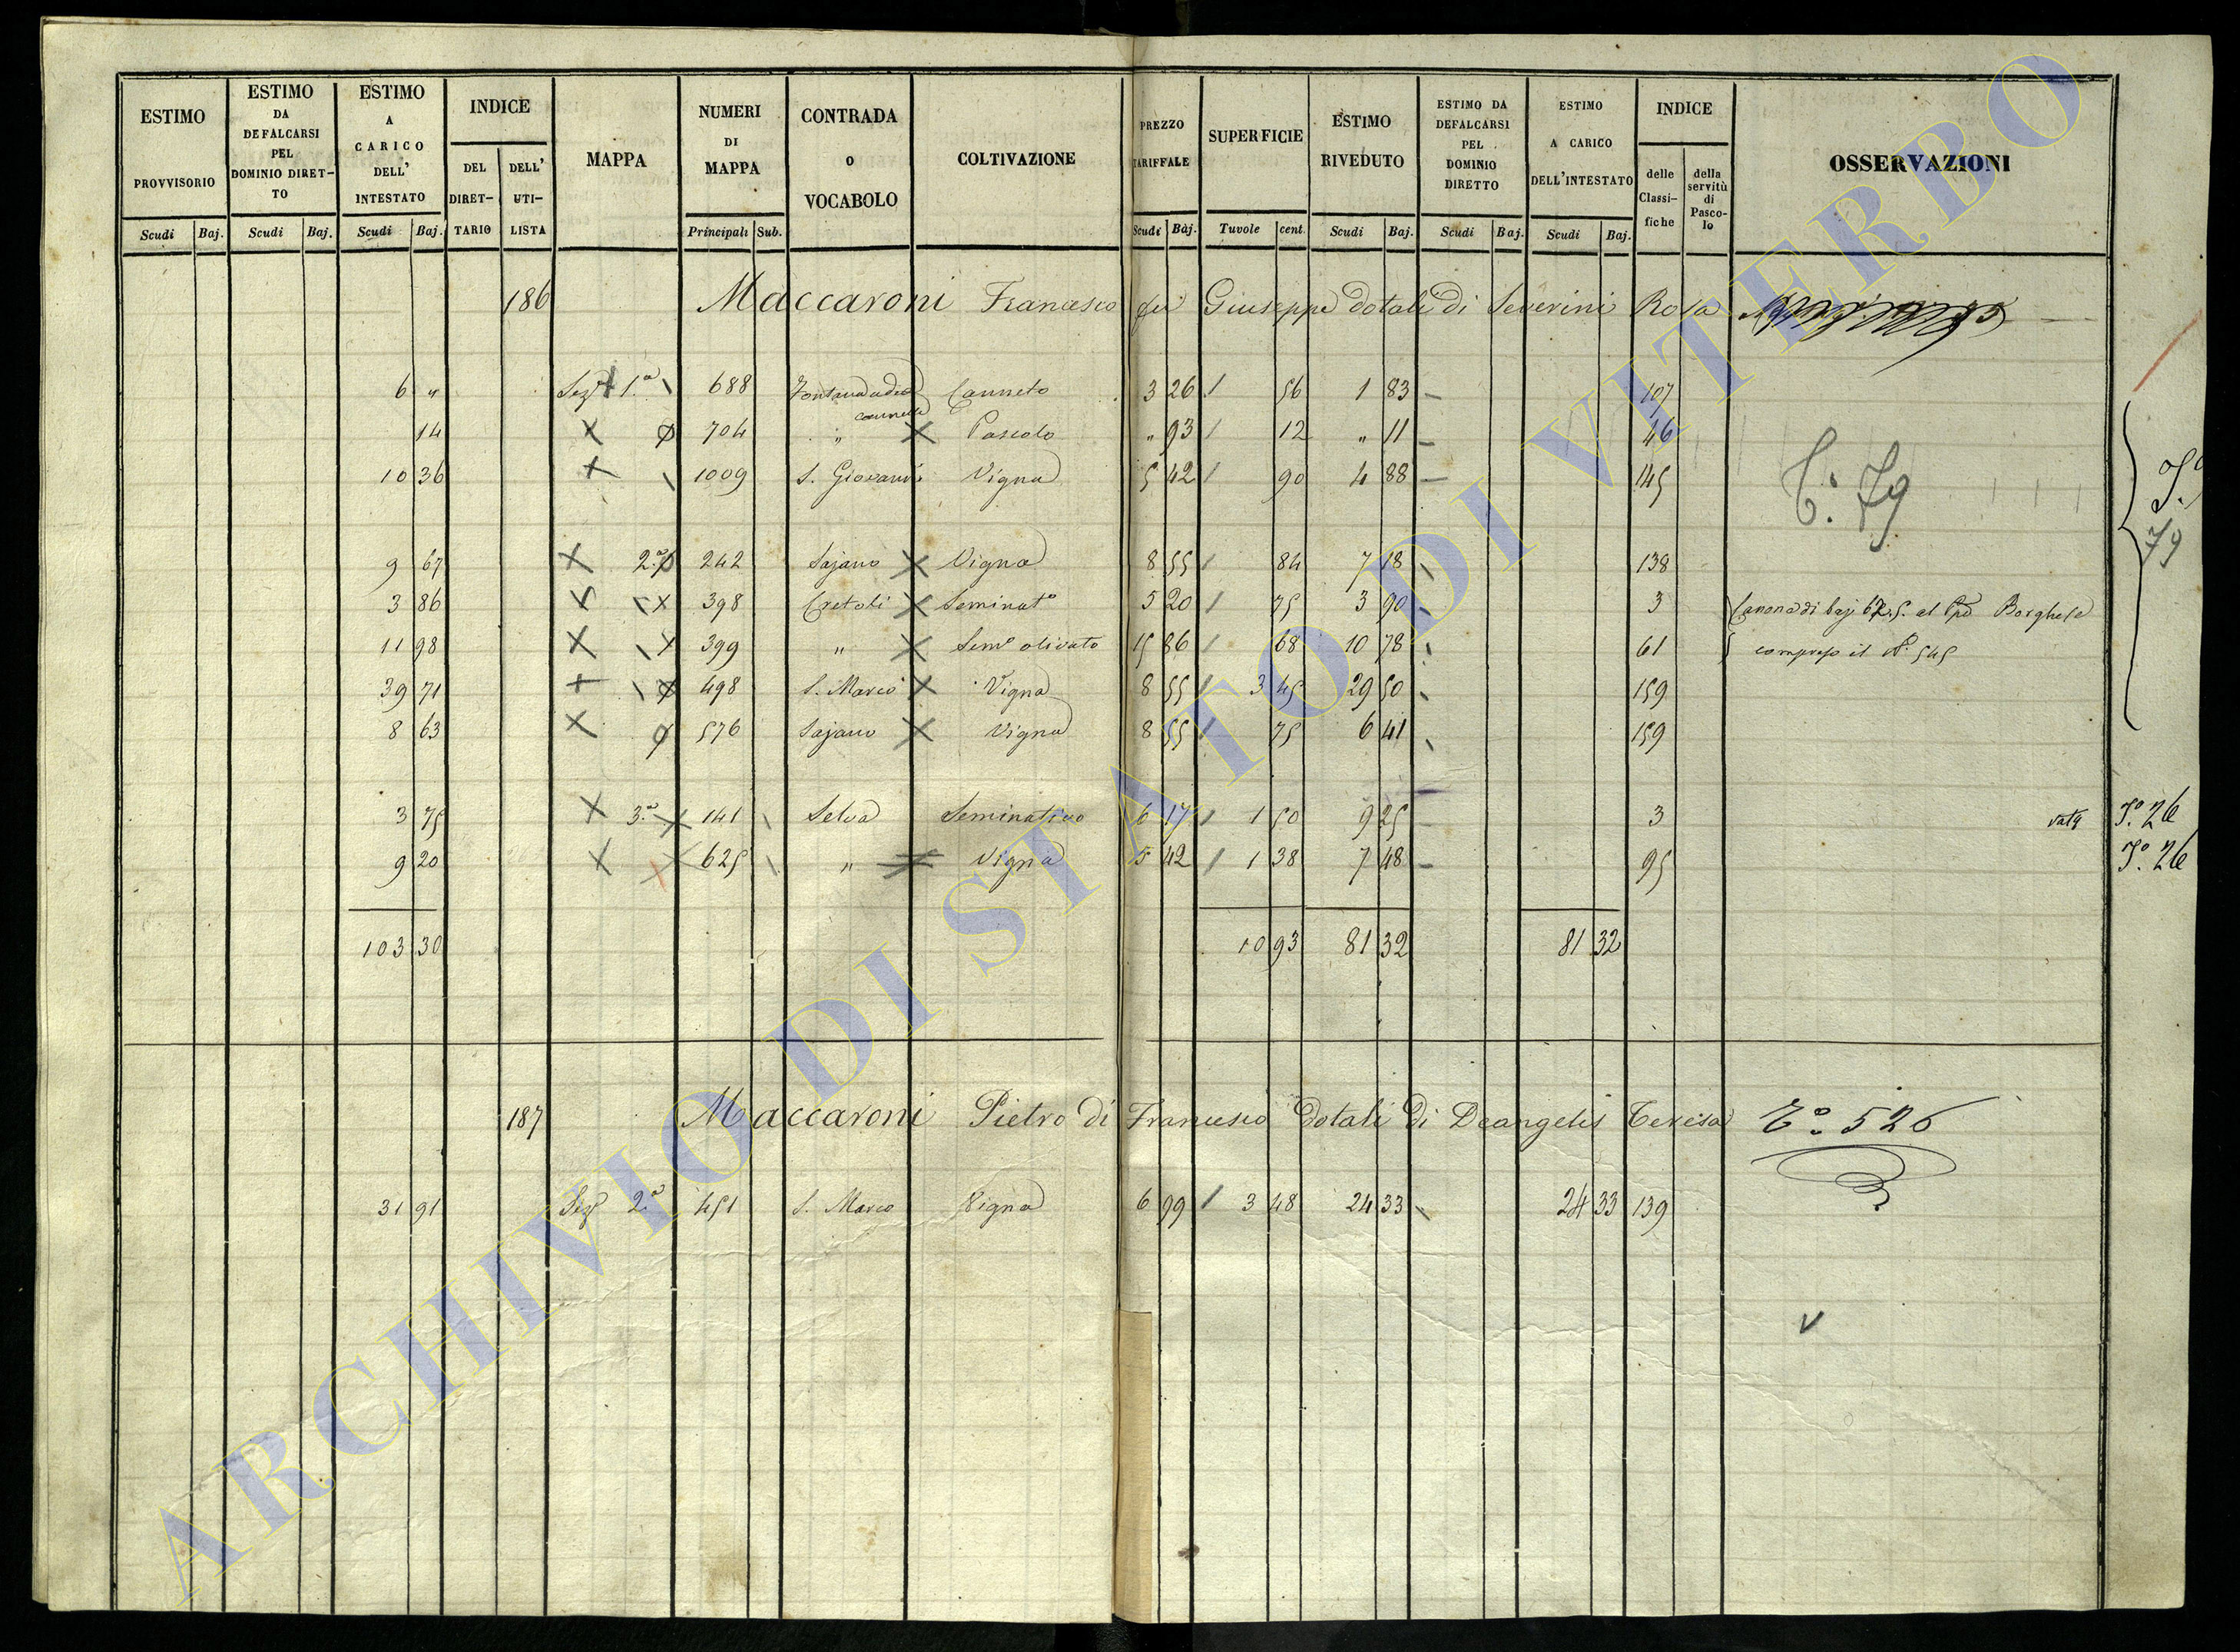 ESTIMO PROVVISORIO Scudi Baj.
ESTIMO DA DEFALCARSI PEL DOMINIO DIRETTO Scudi Baj.
ESTIMO A CARICO DELL' INTESTATO Scudi Baj.
INDICE DEL DIRETTARIO DELL' UTILISTA
MAPPA
NUMERI DI MAPPA Principali Sub.
CONTRADA O VOCABOLO
COLTIVAZIONE
PREZZO TARIFFALE Scudi Baj.
SUPERFICIE Tavole cent.
ESTIMO RIVEDUTO Scudi Baj.
ESTIMO DA DEFALCARSI PEL DOMINIO DIRETTO Scudi Baj.
ESTIMO A CARICO DELL'INTESTATO Scudi Baj.
INDICE delle Classifiche della servitù di Pascolo
OSSERVAZIONI
186 Maccaroni Francesco fu Giuseppe dotali di Severini Rosa
6 " Sez. 1.a 688 Canneto 3 26 56 1 83 107
14 704 " Pascolo " 93 12 " 11 46
10 36 1009 S. Giovanni Vigna 5 42 90 4 88 145
T. 79
79
9 67 2.a 242 Sajano Vigna 8 55 84 7 18 138
3 86 398 Cretoli Seminat.o 5 20 75 3 90 3 Canone di baj al Borghese
11 98 399 " Sem.o olivato 15 86 68 10 78 61 compreso il N.o 545
39 71 498 S. Marco Vigna 8 55 3 45 29 50 159
8 63 576 Sajano Vigna 8 55 75 6 41 159
3 75 3.a 141 Selva Seminativo 6 17 1 50 9 25 3 T.o 26
9 20 625 " Vigna 5 42 1 38 7 48 95 T.o 26
103 30 10 93 81 32 81 32
187 Maccaroni Pietro di Francesco dotali di Deangelis Teresa T.o 526
31 91 Sez. 2.a 451 S. Marco Vigna 6 99 3 48 24 33 24 33 139
ARCHIVIO DI STATO DI VITERBO